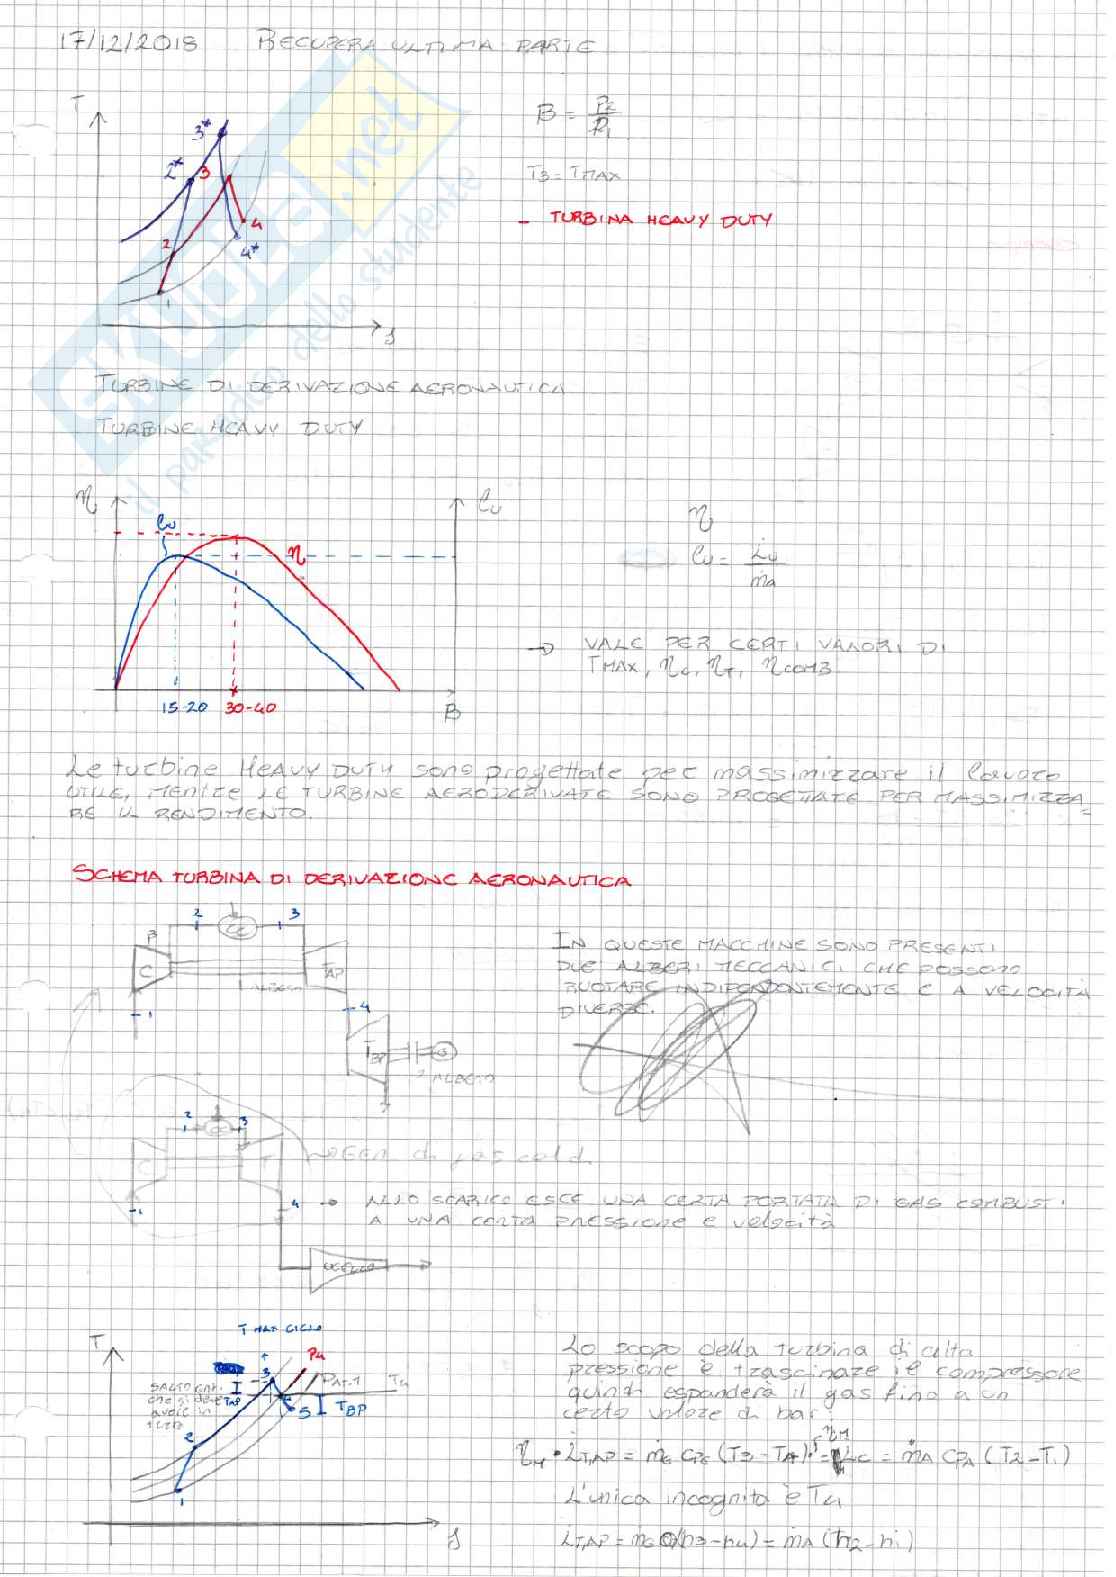 17/12/2018 RECUPERA ULTIMA PARTE
T
3*
2*
3
2
4
4*
1
s
B = P2/P1
T3 = TMAX
- TURBINA HEAVY DUTY
TURBINE DI DERIVAZIONE AERONAUTICA
TURBINE HEAVY DUTY
η
Lu
Lu
η
15-20
30-40
B
η
Lu = L̇u/ṁa
→ VALE PER CERTI VALORI DI
TMAX, ηc, ηT, ηCOMB
Le turbine HEAVY DUTY sono progettate per massimizzare il lavoro
UTILE, MENTRE LE TURBINE AERODERIVATE SONO PROGETTATE PER MASSIMIZZA-
RE IL RENDIMENTO.
SCHEMA TURBINA DI DERIVAZIONE AERONAUTICA
2
CC
3
B
C
1 ALBERO
TAP
1
4
TBP
2 ALBERO
IN QUESTE MACCHINE SONO PRESENTI
DUE ALBERI MECCANICI CHE POSSONO
RUOTARE INDIPENDENTEMENTE E A VELOCITÀ
DIVERSE.
2
CC
3
C
T
1
4
GEN. di gas caldi
→ ALLO SCARICO ESCE UNA CERTA PORTATA DI GAS COMBUSTI
A UNA CERTA PRESSIONE e velocità
UGELLO
T
T MAX CICLO
3
P4
T4
SALTO
TAP
5
TBP
2
1
s
Lo scopo della turbina di alta
pressione è trascinare il compressore
quindi espanderà il gas fino a un
certo valore di bar.
L̇TAP = ṁG CPG (T3-T4) = L̇C = ṁA CPA (T2-T1)
L'unica incognita è T4
L̇TAP = ṁG (h3-h4) = ṁA (h2-h1)
SKUOLA.net
il paradiso dello studente